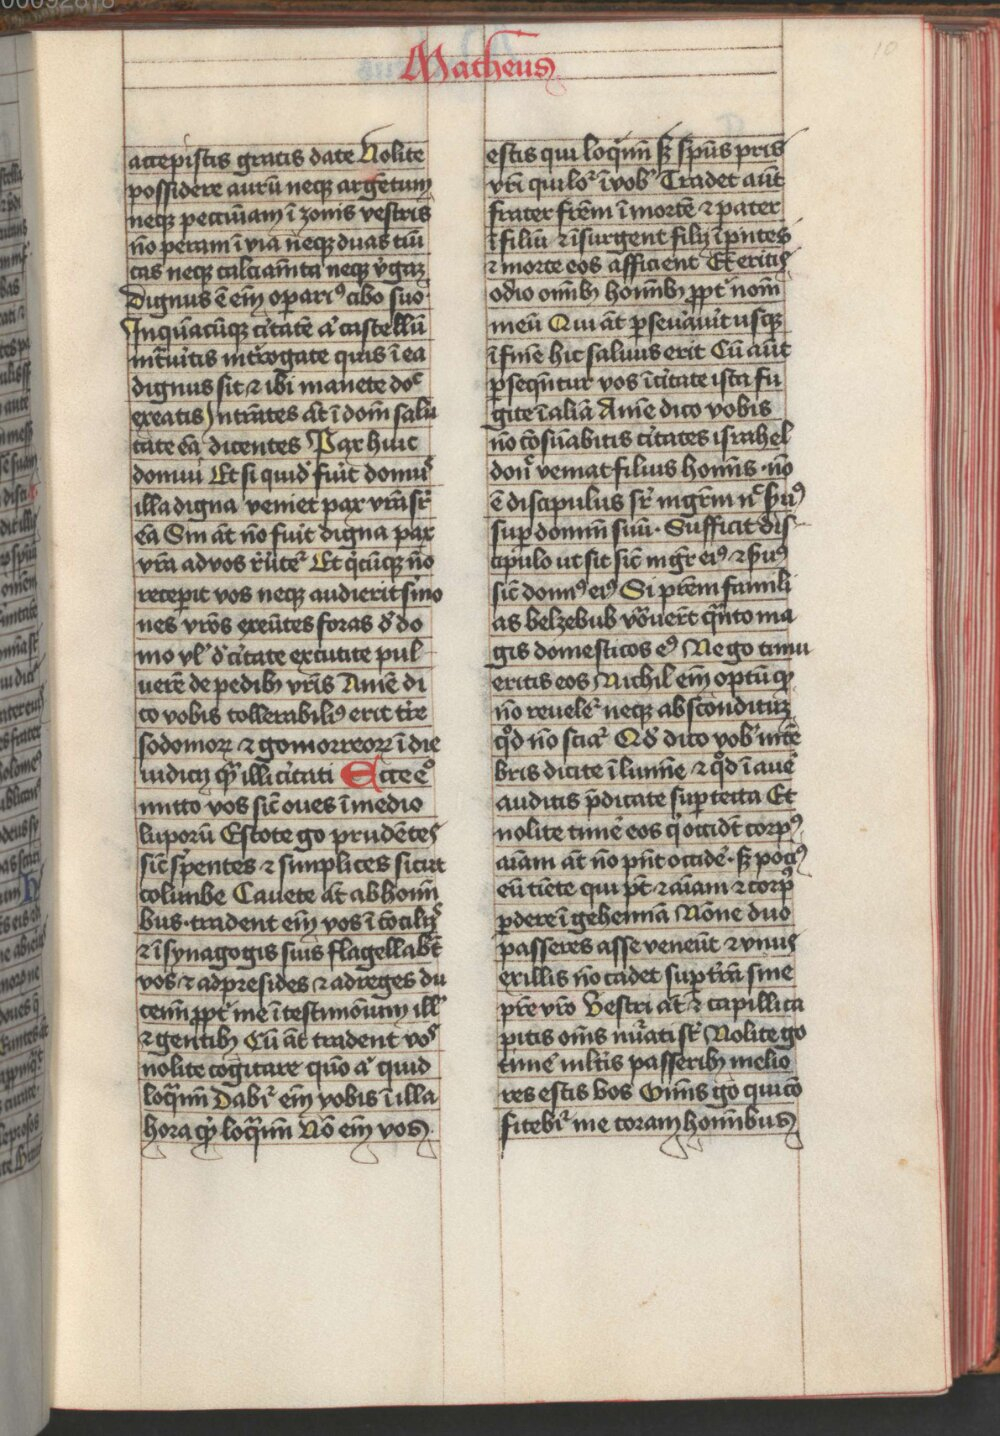 00092818
10
Matheus
accepistis gratis date Nolite
possidere aurū neqꝫ argētum
neqꝫ pecuniam ī zonis vestris
nō peram ī via neqꝫ duas tūi
cas neqꝫ calciamta neqꝫ v̓gaꝫ
Dignus ē eīm operariꝰ cibo suo
Inquācūqꝫ citatē aͭ castellū
intͣuitis intͣrogate quis ī ea
dignus sit ⁊ ibi manete doͨ
exeatis Intrātes āt ī domͫ salu
tate eā dicentes Pax huic
domui Et si quidͤ fuit domꝰ
illa digna veniet pax vrā sꝑ
eā Sin āt nō fuit digna pax
vrā ad vos rͤuteͬ Et qͥcūqꝫ nō
receperit vos neqꝫ audierit smo
nes vrōs exeūtes foras dͤ do
mo vlͤ dͤ citate excutite pul
uerē de pedibꝫ vrīs Amē di
co vobis tollerabiliꝰ erit tre
sodomoꝝ ⁊ gomorreoꝝ ī die
iudicij qͣm illi citati Ecce eͦ
mitto vos sic̄ oues ī medio
luporū Estote go prudētes
sic̄ sꝑentes ⁊ simplices sicut
columbe Cauete āt ab homī
bus · tradent eīm vos ī cōcilijs
⁊ ī synagogis suis flagellabt̄
vos ⁊ ad presides ⁊ ad reges du
cemī ꝓpt̓ me ī testimōium illͥ
⁊ gentibꝫ Cū āt tradent vos
nolite cogitare quō aͭ quid
loqͣmī Dabiͬ eīm vobis ī illa
hora qͥd loqͣmī Nō eīm vos
estis qui loqͥmī sꝫ spūs pris
vrī qui loͬ ī vobͥ Tradet aūt
frater frēm ī mortē ⁊ pater
ī filiū ⁊ īsurgent filij ī pntes
⁊ morte eos afficient Et eritis
odio omībꝫ homībꝫ ꝓpt̓ nom̄
meū Qui āt ꝑseuͣauit usqꝫ
ī finē hic saluus erit Cū aūt
ꝑsequntur vos ī citate ista fu
gite ī aliā Amē dico vobis
nō cōsūabitis citates israhel
donͨ veniat filius homīs · nō
ē discipulus sꝑ mgrm nͨ ẜuꝰ
suꝑ dominū suū · Sufficit dis
cipulo ut sit sic̄ mgr̄ eiꝰ ⁊ ẜuꝰ
sic̄ domꝰ eiꝰ Si prēm famili
as belzebub vocͣuert̄ qͣnto ma
gis domesticos eꝰ Ne go timu
eritis eos Nichil eīm optū qͥd
nō reueleͬ neqꝫ absconditum
qͦd nō sciaͬ Qd dico vobͥ ī tene
bris dicite ī lumīe ⁊ qͦd ī aure
auditis p̄dicate suꝑ tecta Et
nolite timē eos qͥ occidt̄ corpꝰ
aīam āt nō pn̄t occidē · sꝫ pociꝰ
eū tīete qui pt̄ ⁊ aīam ⁊ corpꝰ
ꝑdere ī gehennā Nōne duo
passeres asse veneūt ⁊ vnus
ex illis nō cadet suꝑ tr̄ā sine
pr̄e vr̄o Vestri āt ⁊ capilli ca
pitis om̄s nūati st̄ Nolite go
timē multis passeribꝫ melio
res estis vos Omīs go qui cō
fitebiͬ me coram homībus